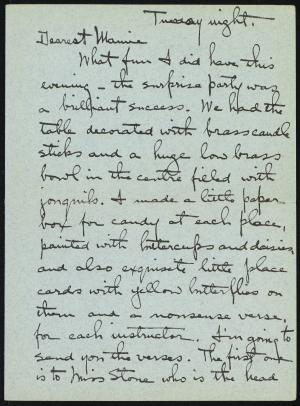 Tuesday night.
Dearest Mamie
What fun I did have this
evening - the surprise party was
a brilliant success. We had the
table decorated with brass candle
sticks and a huge low brass
bowl in the centre filed with
jonquils. I made a little paper
box for candy at each place,
painted with buttercups and daisies
and also exquisite little place
cards with yellow butterflies on
them and a nonsense verse,
for each instructor. I'm going to
send you the verses. The first one
is to Miss Stone who is the head